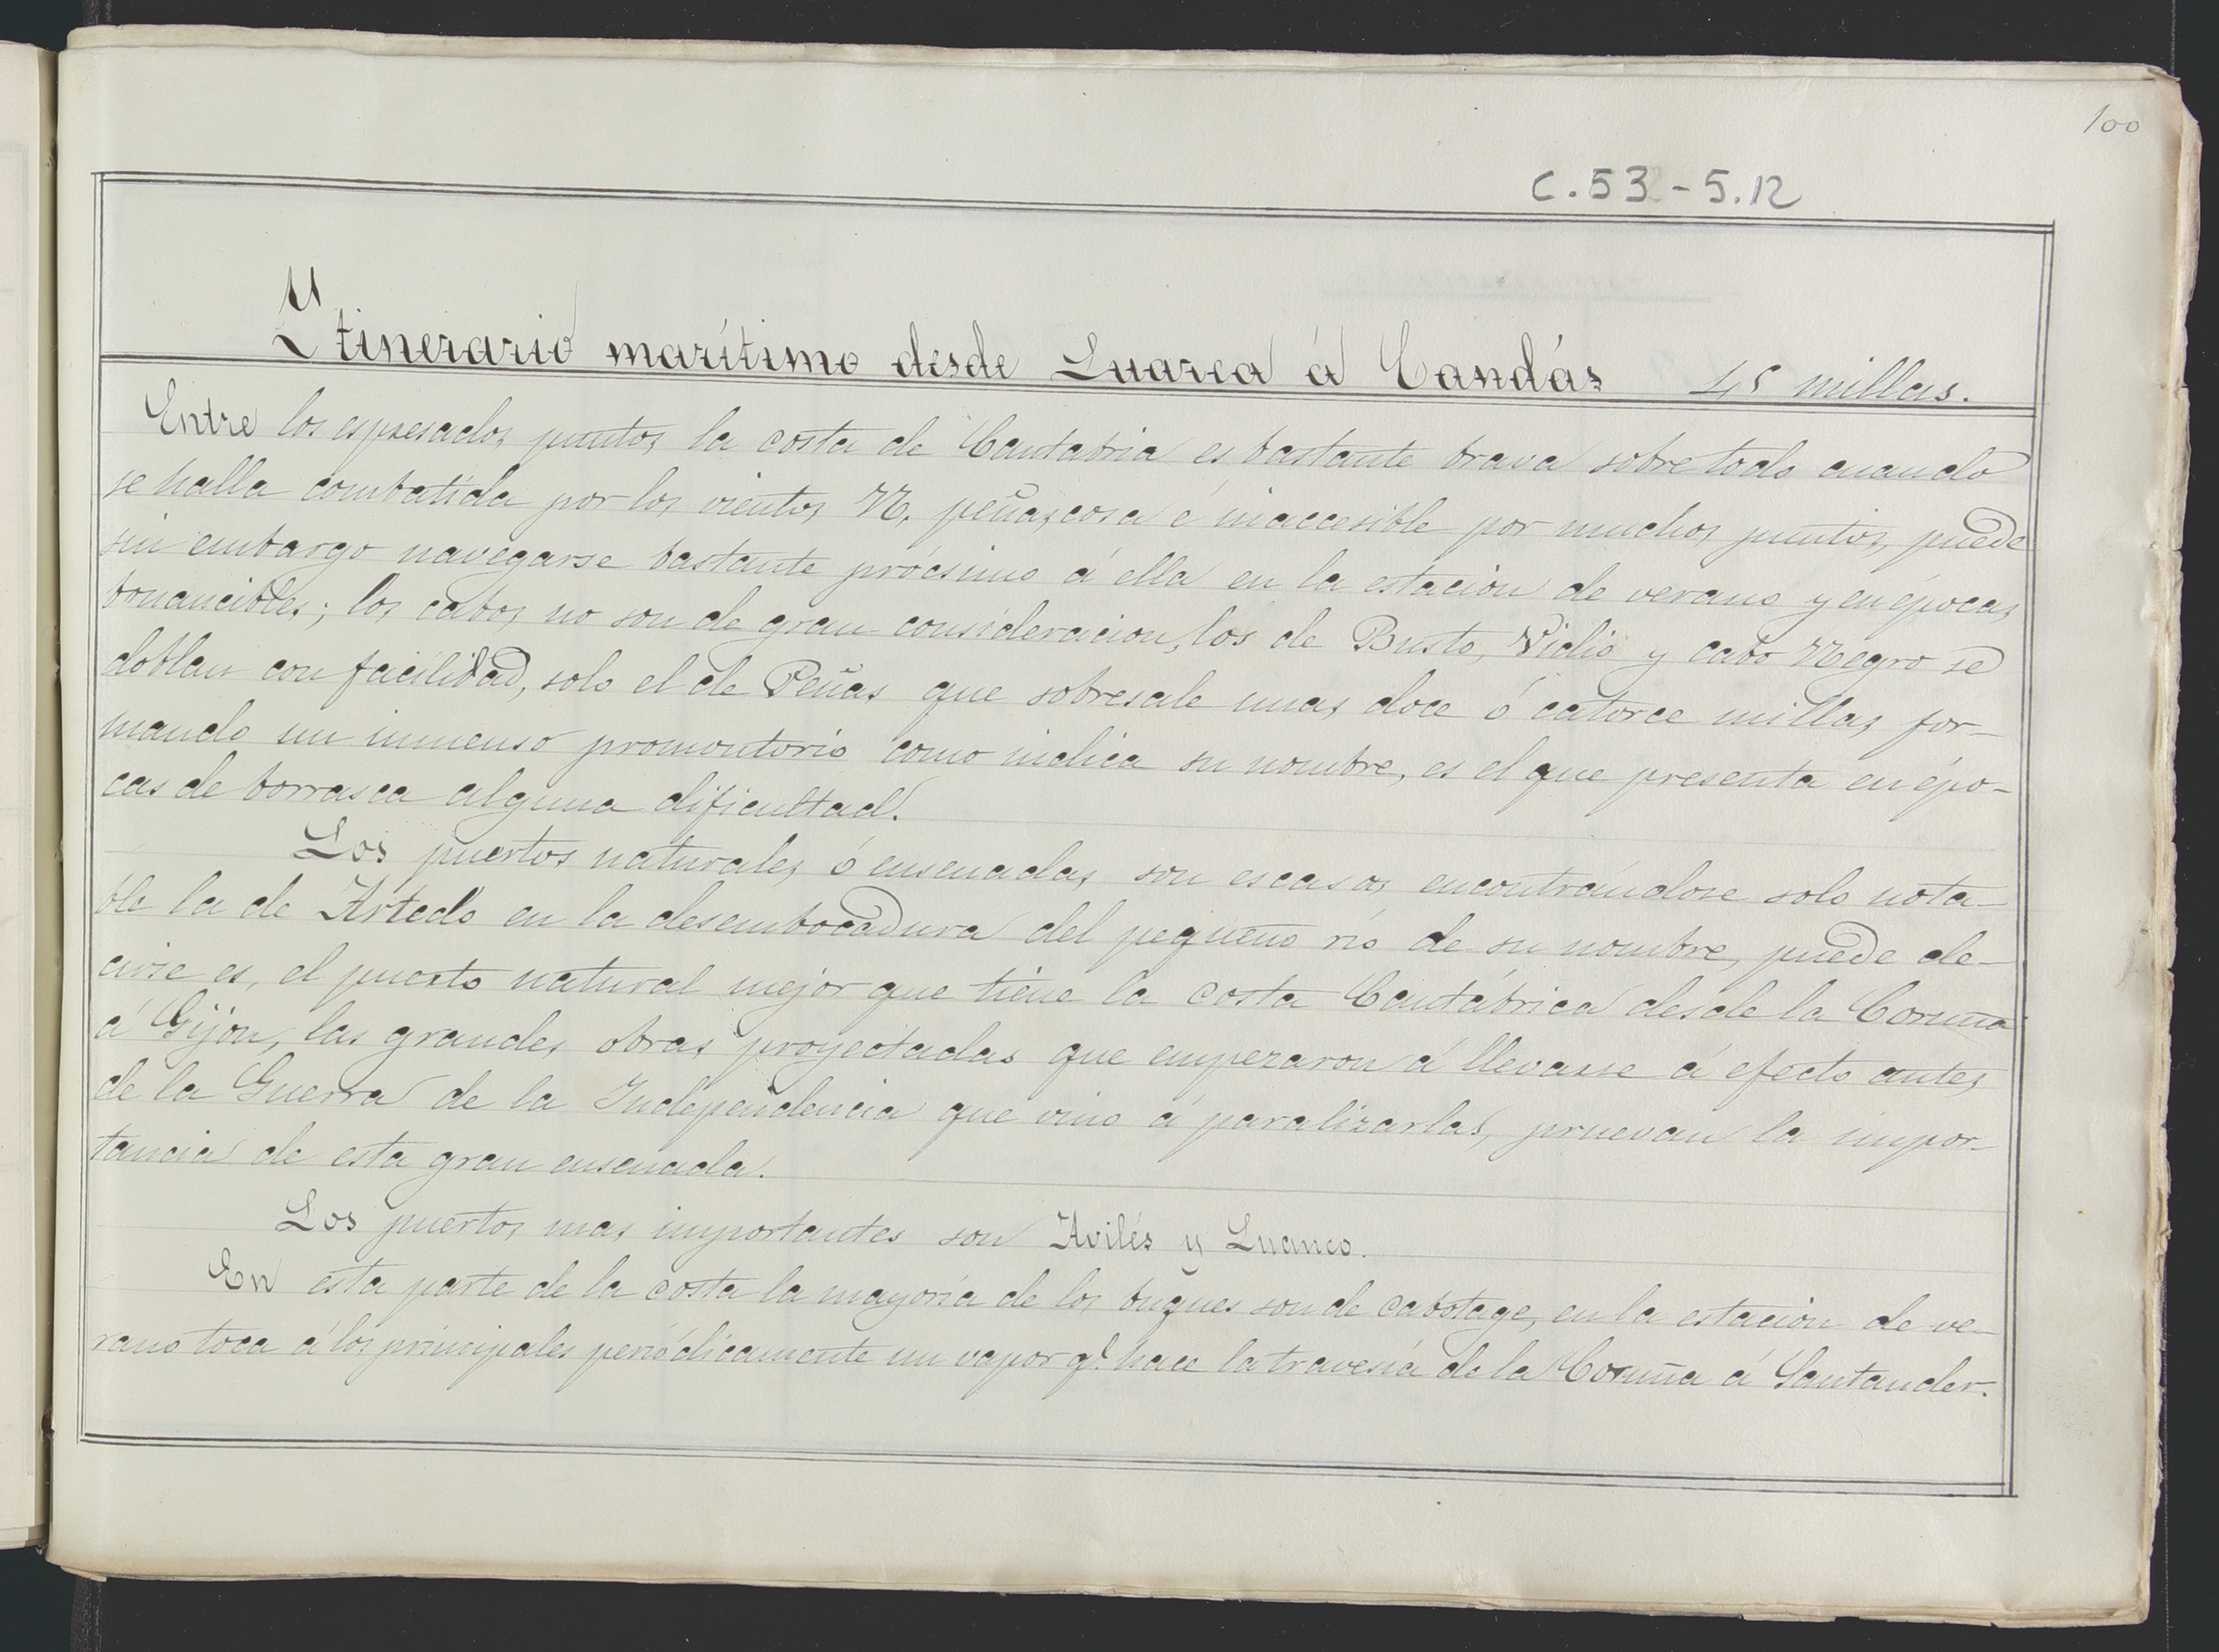 100
C.53-5.12
Itinerario marítimo desde Luarca á Candás 45 millas.
Entre los espresados puntos la costa de Cantabria es bastante brava sobre todo cuando
se halla combatida por los vientos N, peñascosa é inaccesible por muchos puntos, puede
sin embargo navegarse bastante prócsimo á ella en la estación de verano y en épocas
bonancibles; los cabos no son de gran consideracion, los de Busto, Vidio y cabo Negro se
doblan con facilidad, solo el de Peñas que sobresale unas doce ó catorce millas for-
mando un inmenso promontorio como indica su nombre, es el que presenta en épo-
cas de borrasca alguna dificultad.
Los puertos naturales ó ensenadas son escasos encontrándose solo nota-
ble la de Artedo en la desembocadura del pequeño río de su nombre, puede de-
cirse es, el puerto natural mejor que tiene la costa Cantábrica desde la Coruña
á Gijon, las grandes obras proyectadas que empezaron á llevarse á efecto antes
de la Guerra de la Independencia que vino á paralizarlas, pruevan la impor-
tancia de esta gran ensenada.
Los puertos mas importantes son Avilés y Luanco.
En esta parte de la costa la mayoría de los buques son de cabotage, en la estación de ve-
rano toca á los principales periódicamente un vapor q.e hace la travesía de la Coruña á Santander.